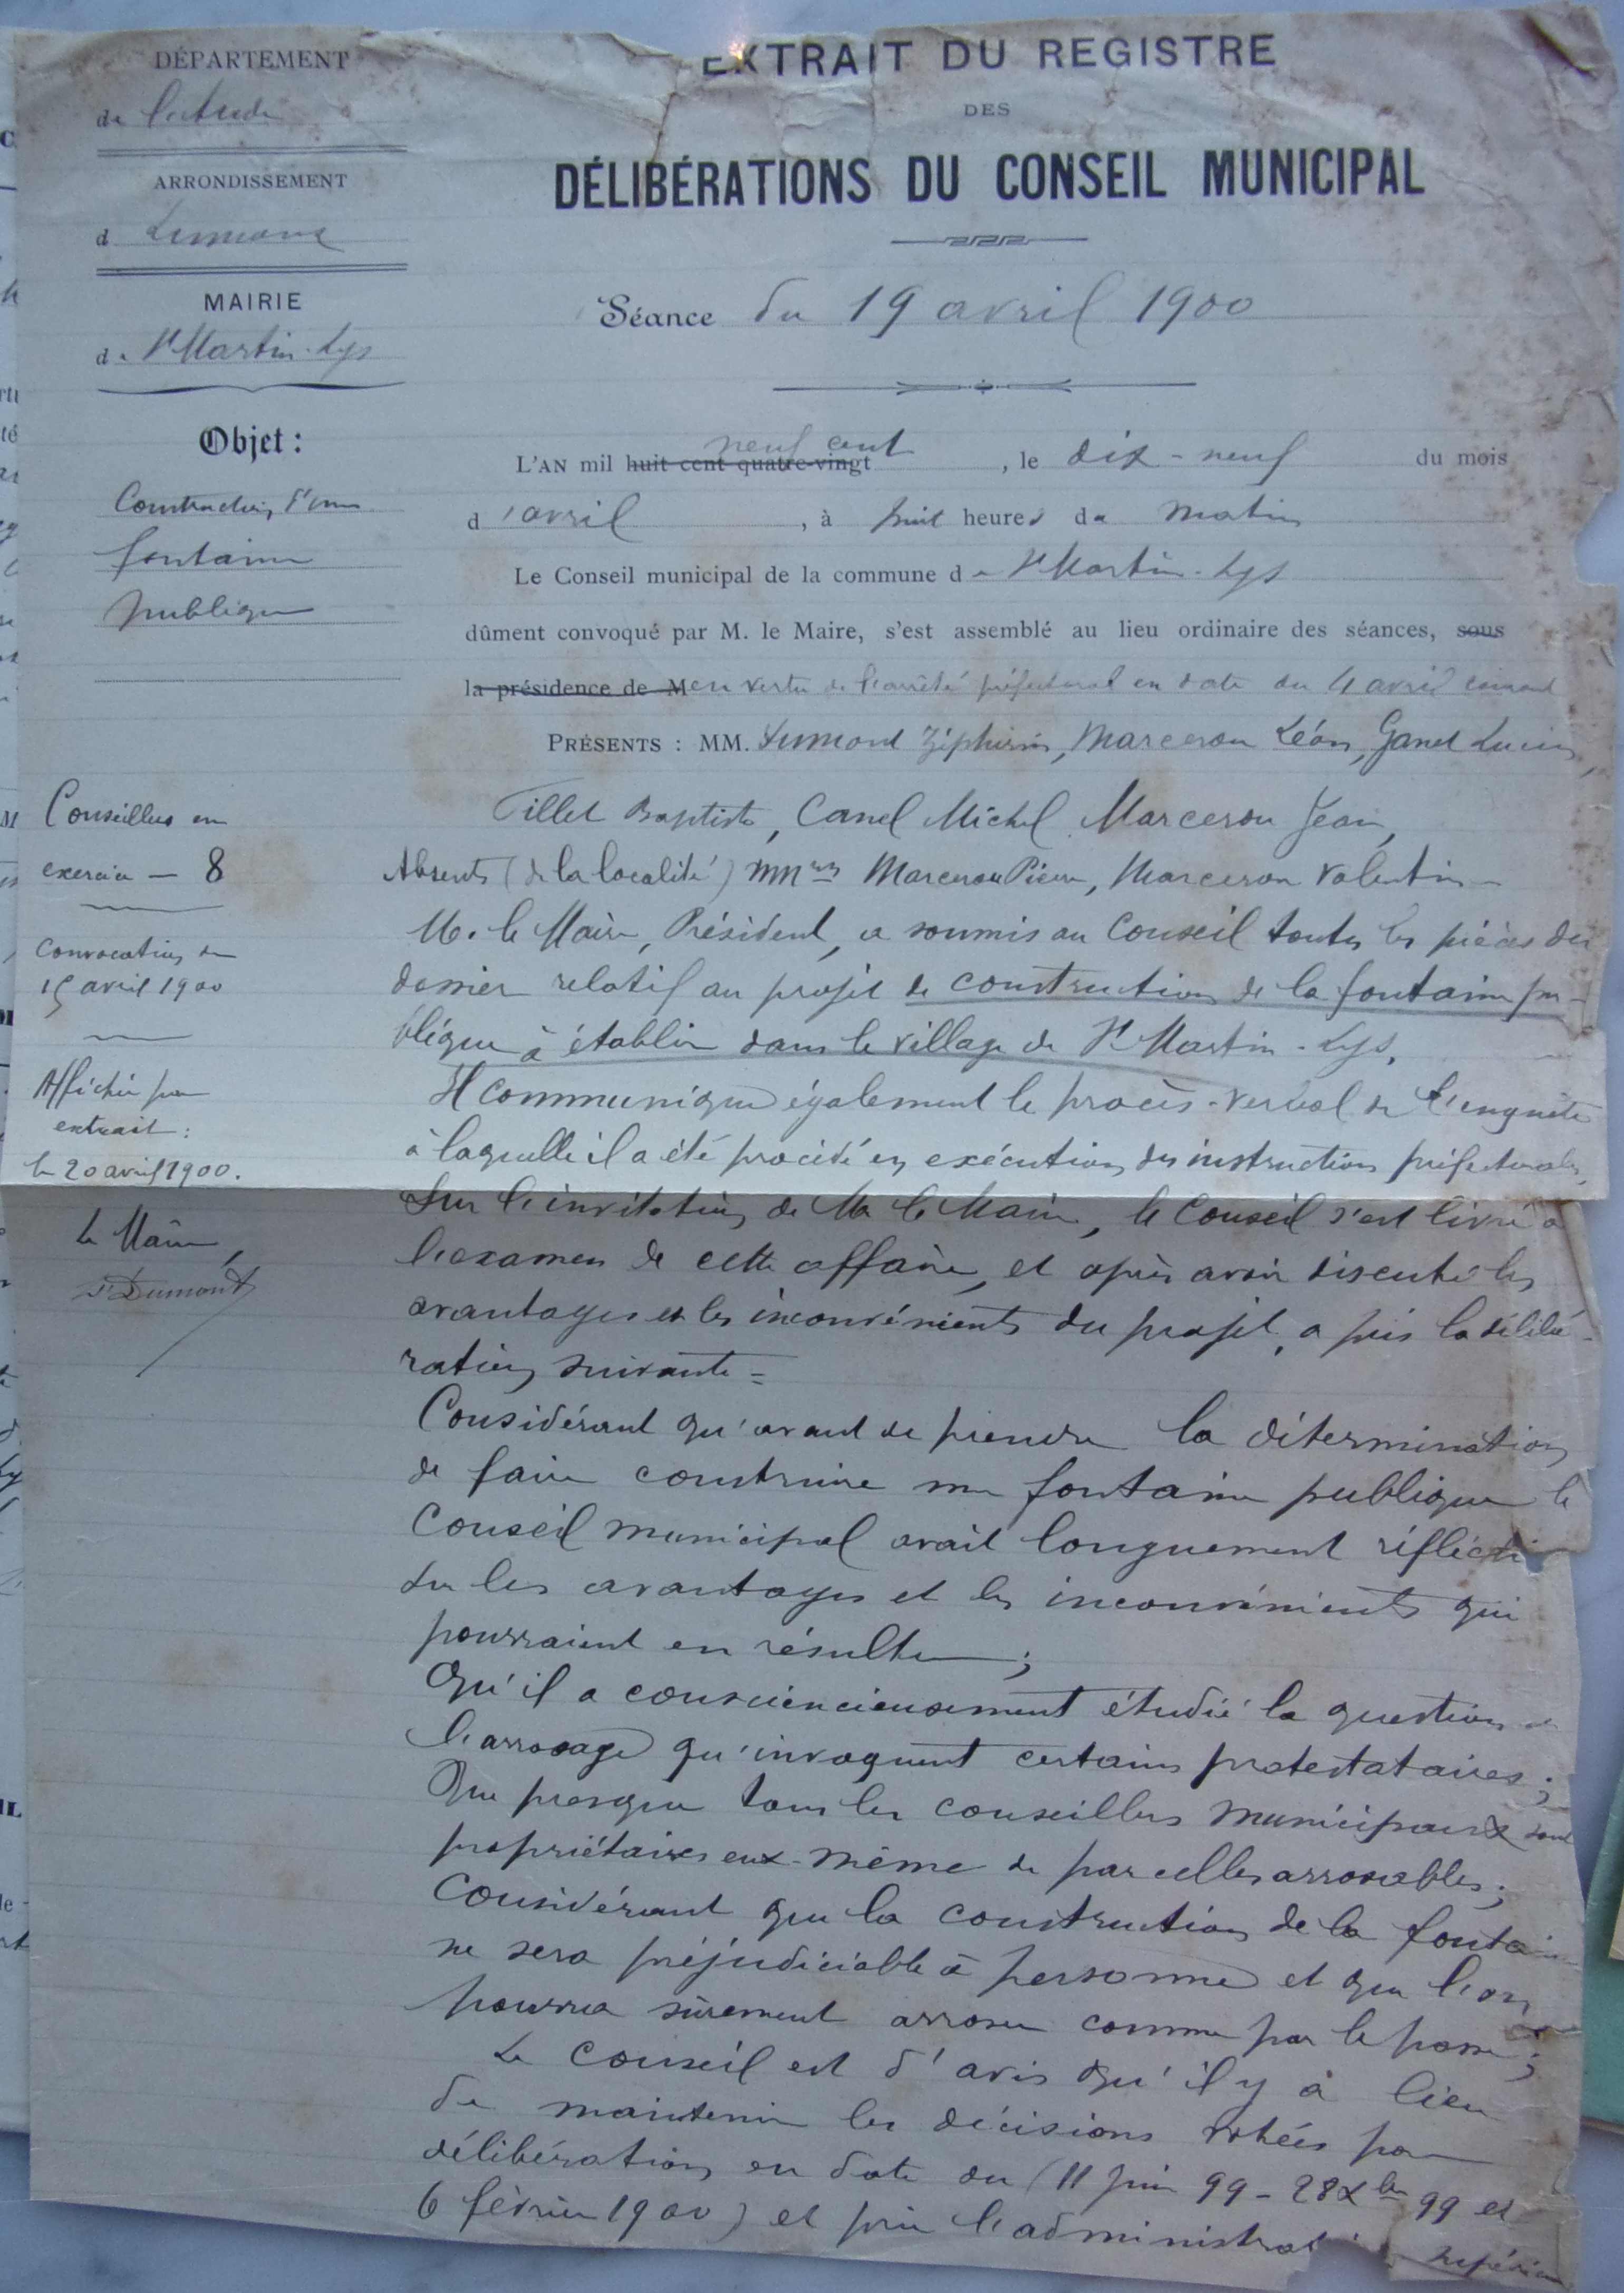 DÉPARTEMENT
de l'Aude
ARRONDISSEMENT
d Limoux
MAIRIE
de St Martin-Lys
Objet :
Construction d'une
fontaine
publique
Conseillers en
exercice — 8
Convocation du
15 avril 1900
Affiché par
extrait :
le 20 avril 1900.
Le Maire,
Dumont
EXTRAIT DU REGISTRE
DES
DÉLIBÉRATIONS DU CONSEIL MUNICIPAL
Séance du 19 avril 1900
L'AN mil huit cent quatre-vingt neuf cent, le dix-neuf du mois
d'avril, à huit heures du matin
Le Conseil municipal de la commune de St Martin-Lys
dûment convoqué par M. le Maire, s'est assemblé au lieu ordinaire des séances, sous
la présidence de M en vertu de l'arrêté préfectoral en date du 4 avril courant
PRÉSENTS : MM. Dumont Zéphirin, Marceron Léon, Ganel Lucien,
Tillet Baptiste, Canel Michel, Marcerou Jean,
Absents (de la localité) MMrs Marcerou Pierre, Marcerou Valentin
M. le Maire, Président, a soumis au Conseil toutes les pièces du
dossier relatif au projet de construction de la fontaine pu-
blique à établir dans le village de St Martin-Lys.
Il communique également le procès-verbal de l'enquête
à laquelle il a été procédé en exécution des instructions préfectorales,
Sur l'invitation de M. le Maire, le Conseil s'est livré à
l'examen de cette affaire, et après avoir discuté les
avantages et les inconvénients du projet, a pris la délibé-
ration suivante =
Considérant qu'avant de prendre la détermination
de faire construire une fontaine publique le
Conseil municipal avait longuement réfléchi
sur les avantages et les inconvénients qui
pourraient en résulter ;
Qu'il a consciencieusement étudié la question de
l'arrosage qu'invoquent certains protestataires ;
Que presque tous les conseillers municipaux sont
propriétaires eux-même de parcelles arrosables ;
Considérant que la construction de la fontaine
ne sera préjudiciable à personne et que l'on
pourra sûrement arroser comme par le passé ;
Le Conseil est d'avis qu'il y à lieu
de maintenir les décisions votées par
délibération en date du (11 juin 99 - 28 Xbre 99 et
6 février 1900) et prie l'administration supérieure